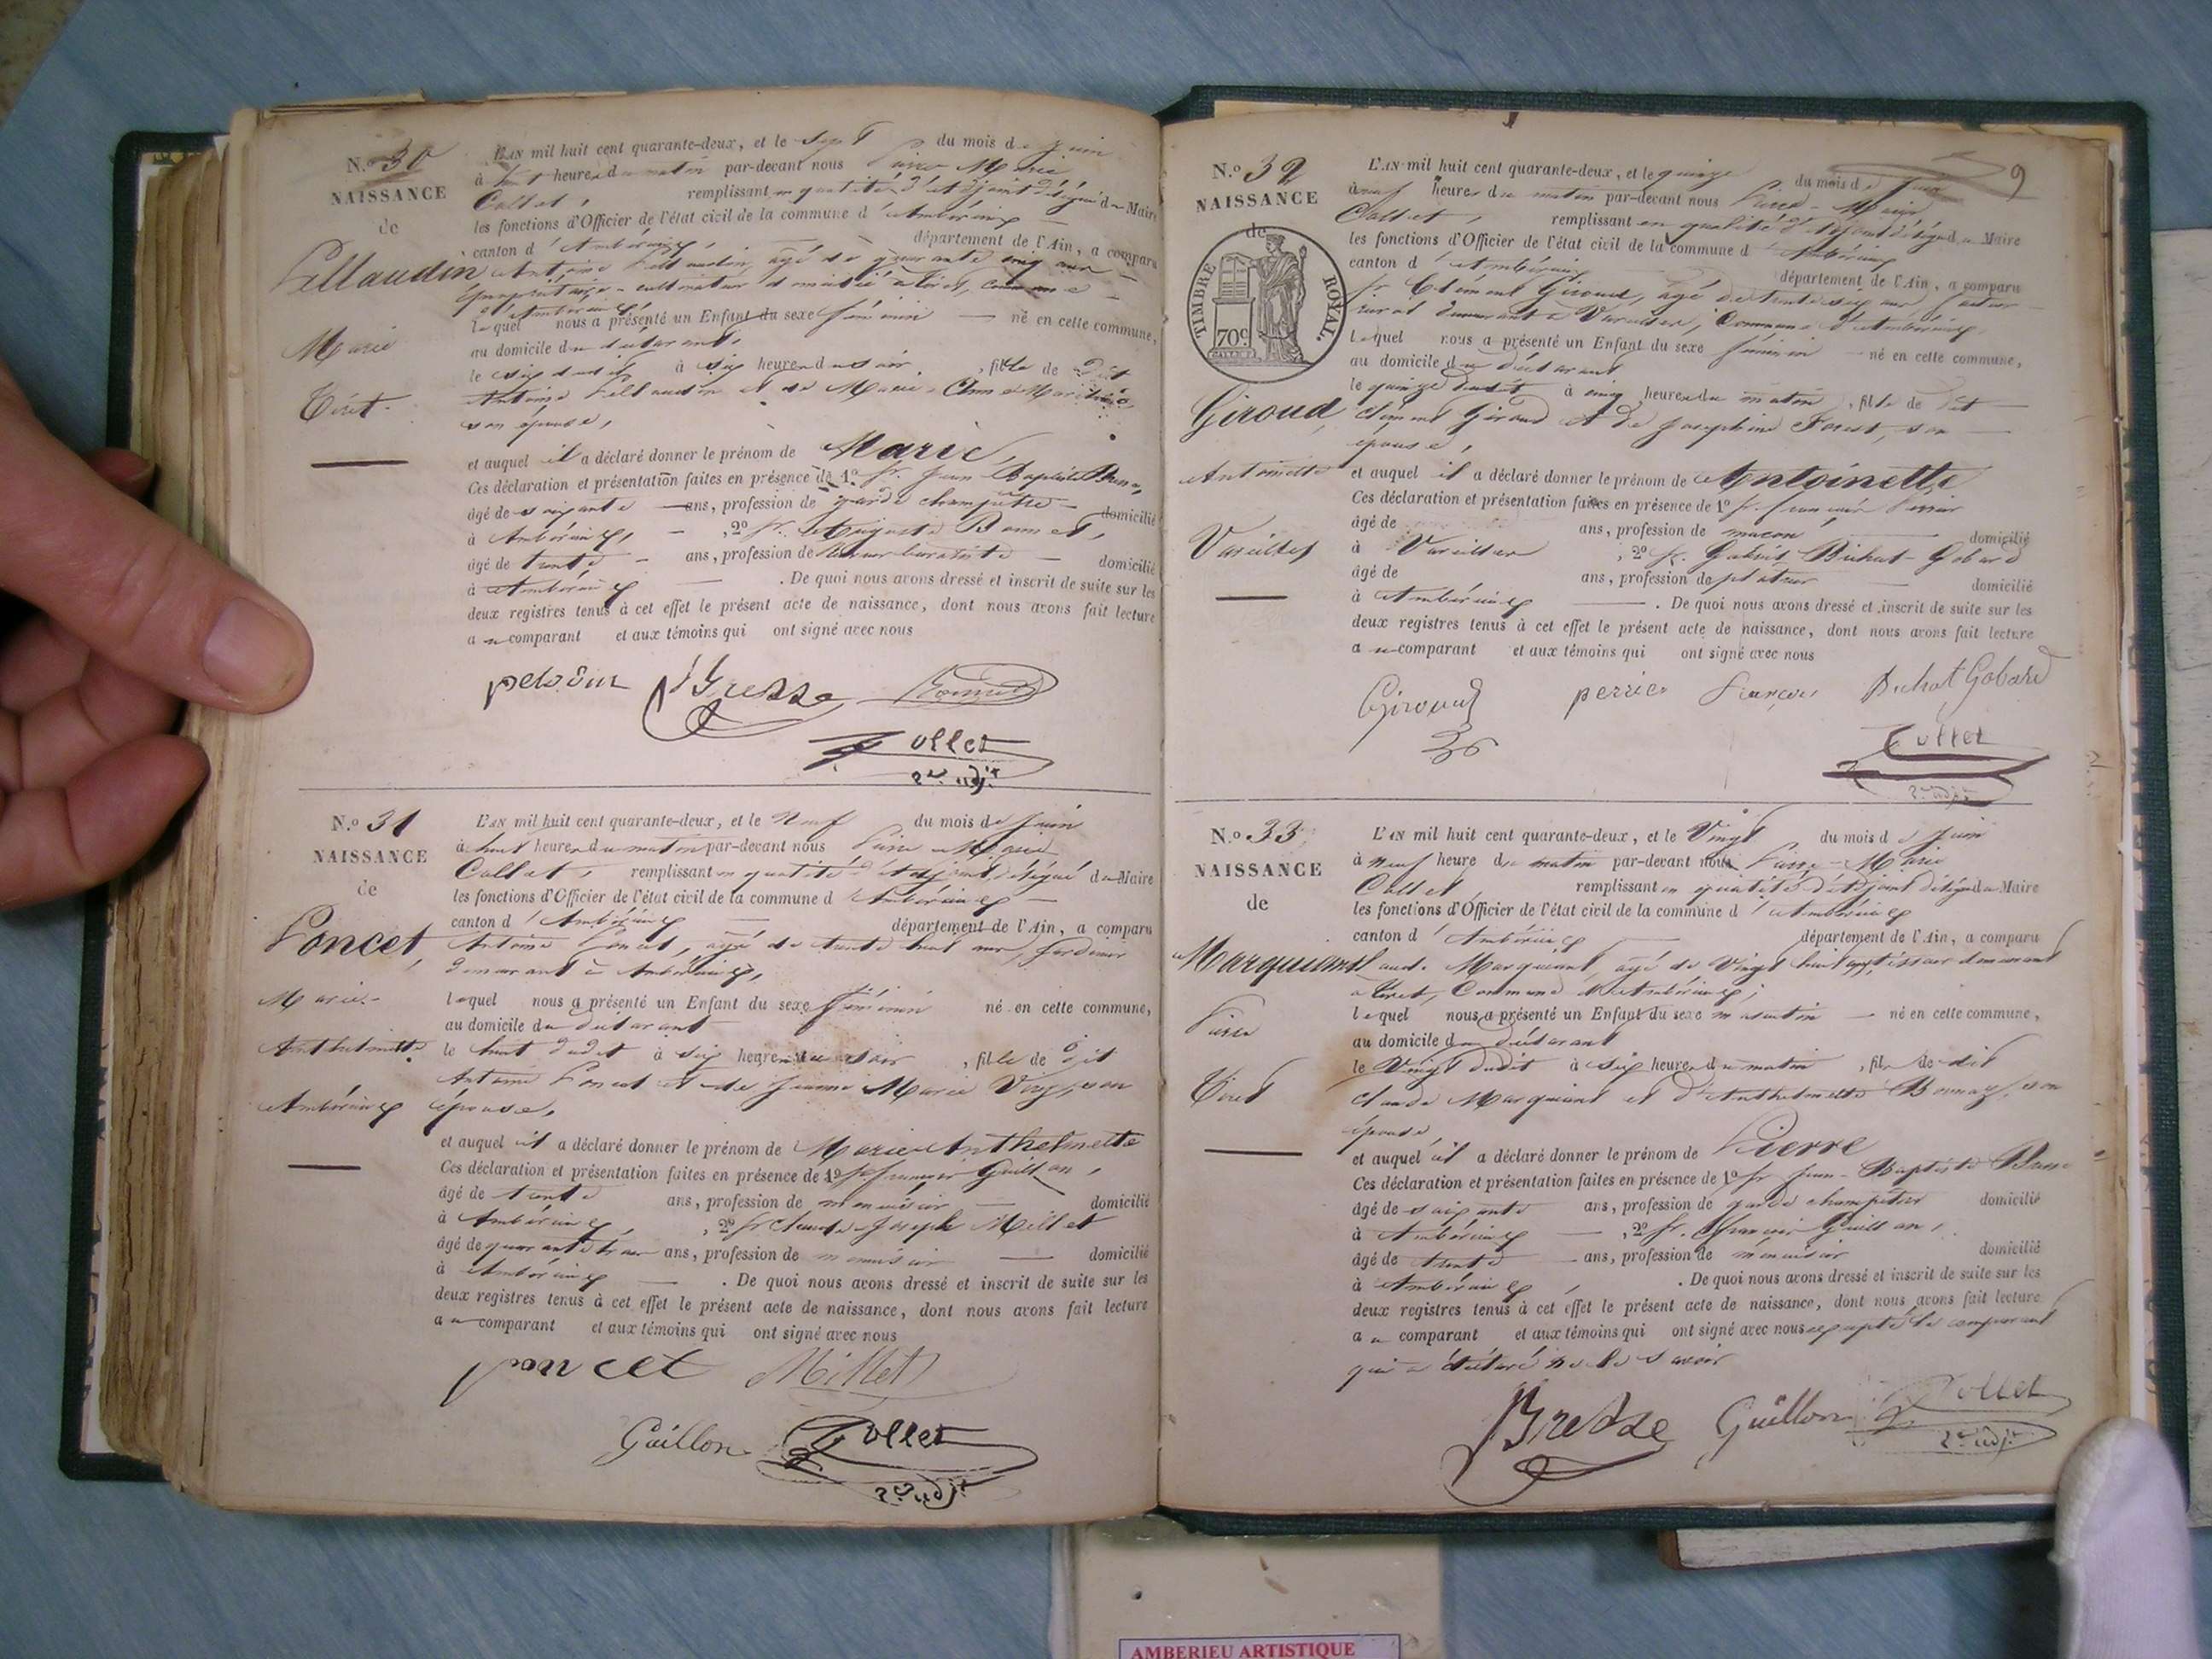 N.º 30
NAISSANCE
de
Pellaudin
Marie
Tiret.
L'AN mil huit cent quarante-deux, et le sept du mois de juin
à huit heures du matin par-devant nous Pierre Marie
Collet, remplissant en qualité d'adjoint délégué du Maire
les fonctions d'Officier de l'état civil de la commune d'Ambérieux
canton d'Ambérieux, département de l'Ain, a comparu
Antoine Pellaudin, agé de quarante cinq ans
propriétaire-cultivateur domicilié à Tiret, commune
d'Ambérieux
lequel nous a présenté un Enfant du sexe féminin né en cette commune,
au domicile du déclarant,
le six dudit à six heures du soir, fille de dit
Antoine Pellaudin et de Marie
son épouse,
et auquel il a déclaré donner le prénom de Marie,
Ces déclaration et présentation faites en présence de 1º sr. Jean Baptiste
âgé de soixante ans, profession de garde champêtre domicilié
à Ambérieux, 2º sr. Auguste Bonnet,
âgé de trente ans, profession de domicilié
à Ambérieux. De quoi nous avons dressé et inscrit de suite sur les
deux registres tenus à cet effet le présent acte de naissance, dont nous avons fait lecture
au comparant et aux témoins qui ont signé avec nous
Bresse
Collet
2me adjt
N.º 31
NAISSANCE
de
Poncet,
Marie-
Anthelmette
Ambérieux
L'AN mil huit cent quarante-deux, et le neuf du mois de juin
à huit heures du matin par-devant nous Pierre Marie
Collet, remplissant en qualité d'adjoint, délégué du Maire
les fonctions d'Officier de l'état civil de la commune d'Ambérieux
canton d'Ambérieux département de l'Ain, a comparu
Antoine Poncet, agé de trente huit ans, jardinier
demeurant à Ambérieux,
lequel nous a présenté un Enfant du sexe féminin né en cette commune,
au domicile du déclarant
le huit dudit à six heures du soir, fille de dit
Antoine Poncet et de Jeanne Marie son
épouse,
et auquel il a déclaré donner le prénom de Marie Anthelmette
Ces déclaration et présentation faites en présence de 1º sr. françois Guillon,
âgé de trente ans, profession de menuisier domicilié
à Ambérieux, 2º sr Claude Joseph Millet
âgé de quarante trois ans, profession de menuisier domicilié
à Ambérieux. De quoi nous avons dressé et inscrit de suite sur les
deux registres tenus à cet effet le présent acte de naissance, dont nous avons fait lecture
au comparant et aux témoins qui ont signé avec nous
poncet Millet
Guillon Collet
2me adjt
9
N.º 32
NAISSANCE
de
TIMBRE ROYAL.
70c
Giroud,
Antoinette
Vareilles
L'AN mil huit cent quarante-deux, et le quinze du mois de juin
à neuf heures du matin par-devant nous Pierre-Marie
Collet, remplissant en qualité d'adjoint délégué du Maire
les fonctions d'Officier de l'état civil de la commune d'Ambérieux
canton d'Ambérieux département de l'Ain, a comparu
sr Clément Giroud, agé de trente six ans, facteur
rural demeurant à Vareilles, Commune d'Ambérieux,
lequel nous a présenté un Enfant du sexe féminin né en cette commune,
au domicile du déclarant
le quinze dudit à cinq heures du matin, fille de dit
Clément Giroud et de Josephine Forest, son
épouse,
et auquel il a déclaré donner le prénom de Antoinette
Ces déclaration et présentation faites en présence de 1º sr. françois Perrier
âgé de ans, profession de maçon domicilié
à Vareilles, 2º sr. Bichat-Gobard
âgé de ans, profession de platrier domicilié
à Ambérieux. De quoi nous avons dressé et inscrit de suite sur les
deux registres tenus à cet effet le présent acte de naissance, dont nous avons fait lecture
au comparant et aux témoins qui ont signé avec nous
Giroud perrier françois Bichat Gobard
36
Collet
2me adjt
N.º 33
NAISSANCE
de
Marquiant
Pierre
Tiret
L'AN mil huit cent quarante-deux, et le Vingt du mois de juin
à neuf heure du matin par-devant nous Pierre-Marie
Collet remplissant en qualité d'adjoint délégué du Maire
les fonctions d'Officier de l'état civil de la commune d'Ambérieux
canton d'Ambérieux département de l'Ain, a comparu
Claude Marquiant, agé de Vingt huit ans, demeurant
à Tiret, Commune d'Ambérieux;
lequel nous a présenté un Enfant du sexe masculin né en cette commune,
au domicile du déclarant
le Vingt dudit à six heures du matin, fils de dit
Claude Marquiant et d'Anthelmette Bonnaz, son
épouse,
et auquel il a déclaré donner le prénom de Pierre
Ces déclaration et présentation faites en présence de 1º sr Jean-Baptiste Bresse
âgé de soixante ans, profession de garde champêtre domicilié
à Ambérieux, 2º sr. françois Guillon,
âgé de trente ans, profession de menuisier domicilié
à Ambérieux. De quoi nous avons dressé et inscrit de suite sur les
deux registres tenus à cet effet le présent acte de naissance, dont nous avons fait lecture
au comparant et aux témoins qui ont signé avec nous excepté le comparant
qui a déclaré ne le savoir
Bresse Guillon Collet
2me adjt
AMBERIEU ARTISTIQUE